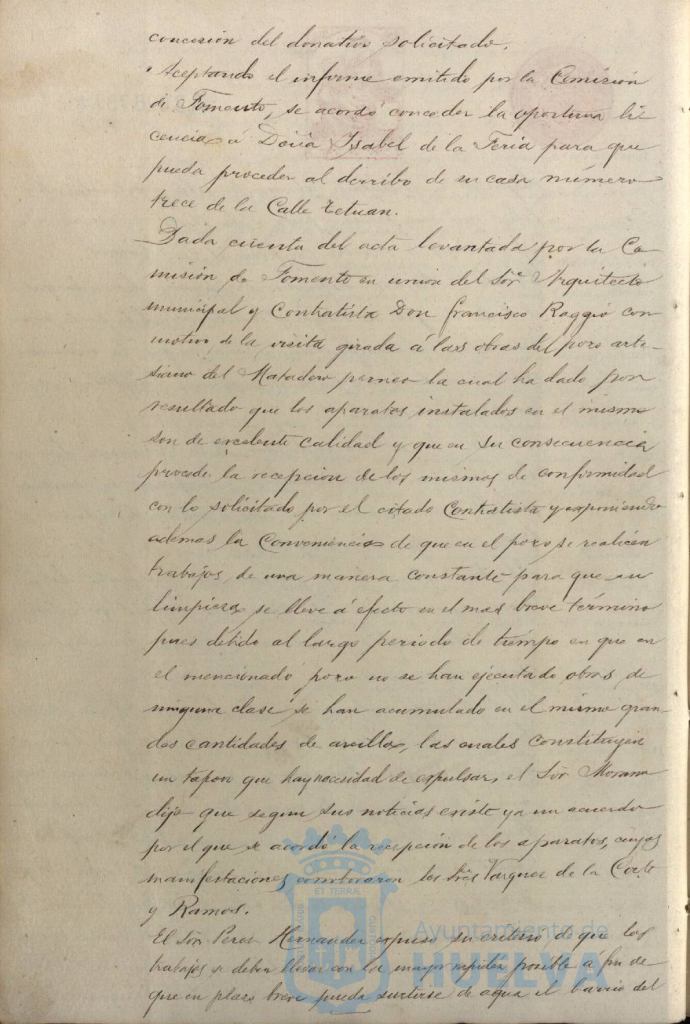 concesión del donativo solicitado.
Aceptando el informe emitido por la Comisión
de Fomento, se acordó conceder la oportuna li
cencia á Doña Ysabel de la Feria para que
pueda proceder al derribo de su casa número
trece de la Calle Tetuan.
Dada cuenta del acta levantada por la Co-
misión de Fomento en union del Sor Arquitecto
municipal y Contratista Don Francisco Raggio con
motivo de la visita girada á las obras del pozo arte-
siano del Matadero la cual ha dado por
resultado que los aparatos instalados en el mismo
son de excelente calidad y que en su consecuencia
procede la recepcion de los mismos de conformidad
con lo solicitado por el citado Contratista y exponiendo
ademas la conveniencia de que en el pozo se realicen
trabajos de una manera constante para que su
limpieza se lleve á efecto en el mas breve término
pues debido al largo periodo de tiempo en que en
el mencionado pozo no se han ejecutado obras de
ninguna clase se han acumulado en el mismo gran
des cantidades de arcillas, las cuales constituyen
un tapon que hay necesidad de expulsar, el Sor Morano
dijo que segun sus noticias existe ya un acuerdo
por el que se acordó la recepción de los aparatos, cuyas
manifestaciones corroboraron los Sres Vazquez de la Corte
y Ramos.
El Sor Perez Hernandez expuso su criterio de que los
trabajos se deben llevar con la mayor rapidez posible a fin de
que en plazo breve pueda surtirse de agua el barrio del
ET TERRAE
Ayuntamiento de
HUELVA